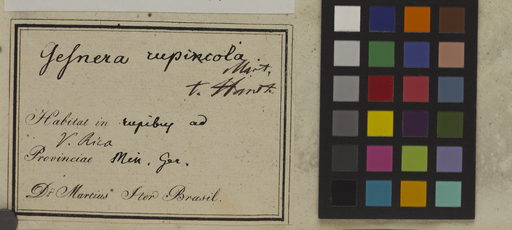 Gesnera rupincola
Mart.
t. Hanst.
Habitat in rupibus ad
V. Rica
Provinciae Min. Ger.
Dr. Martius Iter Brasil.